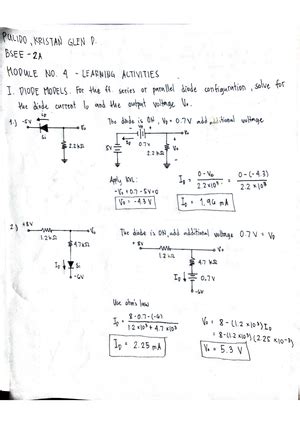 PULIDO, KRISTAN GLEN D.
BSEE - 2A
MODULE NO. 4 - LEARNING ACTIVITIES
I. DIODE MODELS. For the ff. series or parallel diode configuration, solve for
the diode current ID and the output voltage Vo.
1.) -5V
Si
ID
Vo
2.2kΩ
The diode is ON, VD = 0.7V add additional voltage
ID
0.7V
5V
2.2kΩ
Vo
Apply KVL:
-Vo + 0.7 - 5V = 0
Vo = -4.3 V
ID = 0 - Vo / 2.2 x 10³ = 0 - (-4.3) / 2.2 x 10³
ID = 1.96 mA
2.) +8V
1.2 kΩ
Vo
4.7kΩ
ID
Si
-6V
The diode is ON, add additional voltage 0.7V = VD
+8V
1.2kΩ
Vo
4.7 kΩ
ID
0.7V
-6V
Use ohm's law
ID = 8 - 0.7 - (-6) / 1.2 x 10³ + 4.7 x 10³
ID = 2.25 mA
Vo = 8 - (1.2 x 10³) ID
= 8 - (1.2 x 10³)(2.25 x 10⁻³)
Vo = 5.3 V